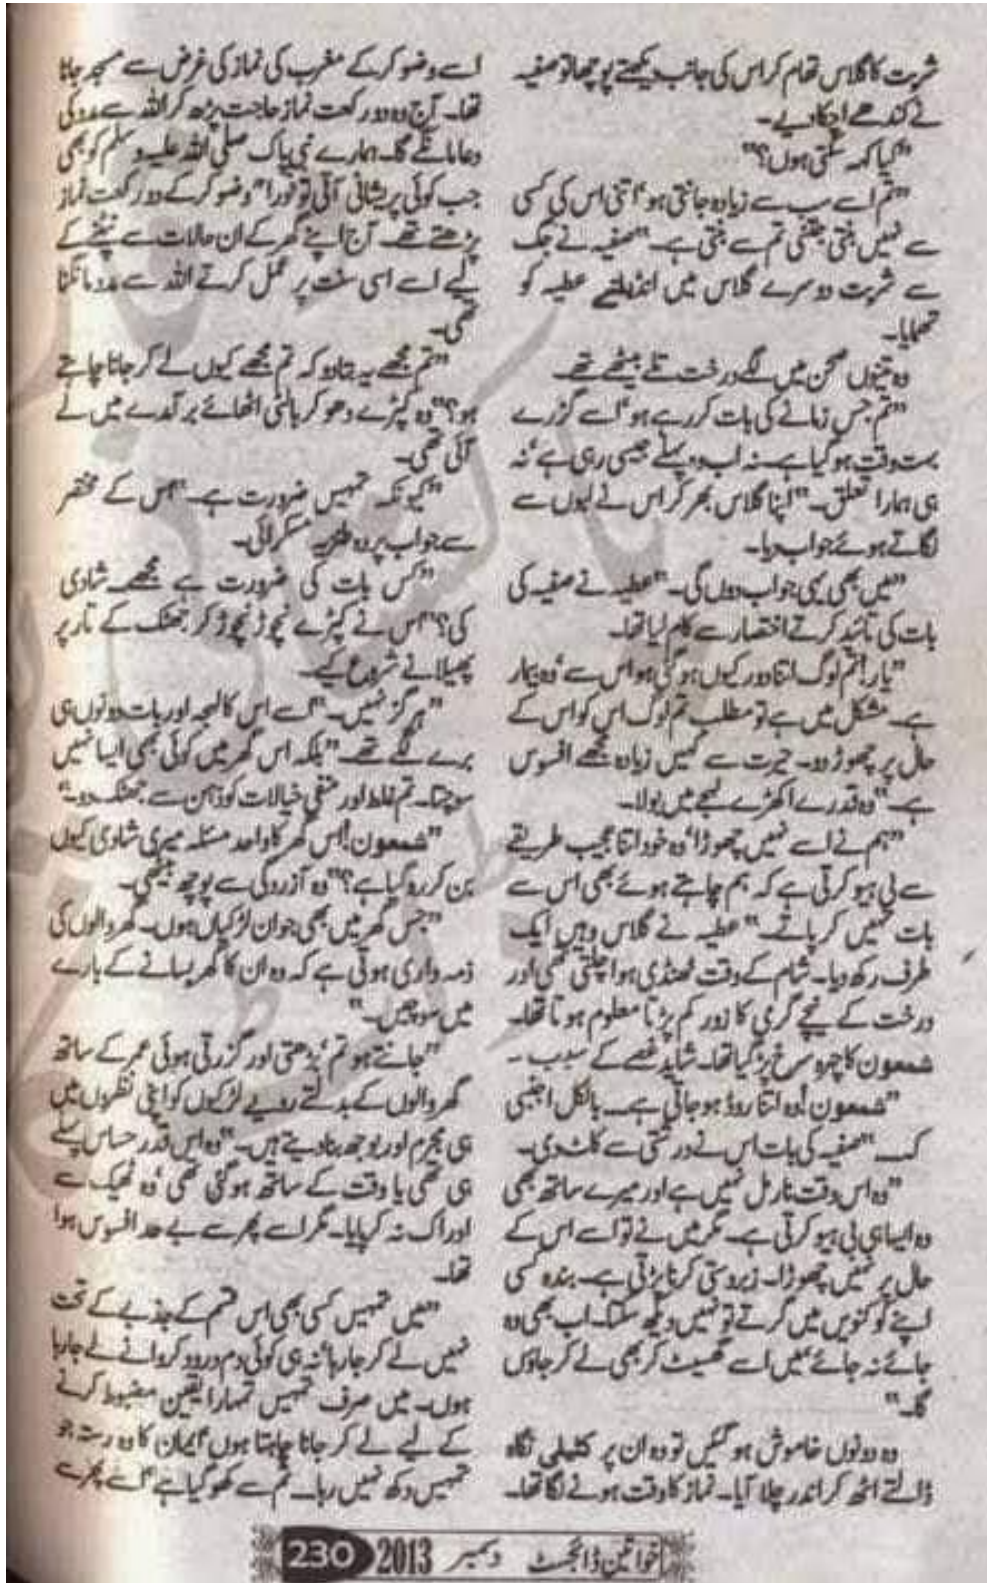 شربت کا گلاس تھام کر اس کی جانب دیکھتے پوچھا تو صفیہ
نے کندھے اچکا دیے۔
"کیا کہہ سکتی ہوں؟"
"تم اسے سب سے زیادہ جانتی ہو' اتنی اس کی کسی
سے نہیں بنتی جتنی تم سے بنتی ہے۔" صفیہ نے جگ
سے شربت دوسرے گلاس میں انڈیلتے عطیہ کو
تھمایا۔
وہ تینوں صحن میں لگے درخت تلے بیٹھے تھے۔
"تم جس زمانے کی بات کر رہے ہو' اسے گزرے
بہت وقت ہو گیا ہے۔ نہ اب وہ پہلے جیسی رہی ہے' نہ
ہی ہمارا تعلق۔" اپنا گلاس بھر کر اس نے لبوں سے
لگاتے ہوئے جواب دیا۔
"میں بھی یہی جواب دوں گی۔" عطیہ نے صفیہ کی
بات کی تائید کرتے اختصار سے کام لیا تھا۔
"یار! تم لوگ اتنا دور کیوں ہو گئی ہو اس سے' وہ بیمار
ہے۔ مشکل میں ہے تو مطلب تم لوگ اس کو اس کے
حال پر چھوڑ دو۔ حیرت سے کہیں زیادہ مجھے افسوس
ہے۔" وہ قدرے اکھڑے لہجے میں بولا۔
"ہم نے اسے نہیں چھوڑا' وہ خود اتنا عجیب طریقے
سے بی ہیو کرتی ہے کہ ہم چاہتے ہوئے بھی اس سے
بات نہیں کر پاتے۔" عطیہ نے گلاس وہیں ایک
طرف رکھ دیا۔ شام کے وقت ٹھنڈی ہوا چلتی تھی اور
درخت کے نیچے گرمی کا زور کم پڑتا معلوم ہوتا تھا۔
شمعون کا چہرہ سرخ پڑ گیا تھا۔ شاید غصے کے سبب۔
"شمعون! وہ اتنا روڈ ہو جاتی ہے۔ بالکل اجنبی
کہ۔" صفیہ کی بات اس نے درشتی سے کاٹ دی۔
"وہ اس وقت نارمل نہیں ہے اور میرے ساتھ بھی
وہ ایسا ہی بی ہیو کرتی ہے۔ مگر میں نے تو اسے اس کے
حال پر نہیں چھوڑا۔ زبردستی کرنا پڑتی ہے۔ بندہ کسی
اپنے کو کنویں میں گرتے تو نہیں دیکھ سکتا۔ اب بھی وہ
جائے نہ جائے' میں اسے گھسیٹ کر بھی لے کر جاؤں
گا۔"
وہ دونوں خاموش ہو گئیں تو وہ ان پر کٹیلی نگاہ
ڈالتے اٹھ کر اندر چلا آیا۔ نماز کا وقت ہونے لگا تھا۔
اسے وضو کر کے مغرب کی نماز کی غرض سے مسجد جانا
تھا۔ آج وہ دو رکعت نماز حاجت پڑھ کر اللہ سے مدد کی
دعا مانگے گا۔ ہمارے نبی پاک صلی اللہ علیہ وسلم کو بھی
جب کوئی پریشانی آتی تو فوراً" وضو کر کے دو رکعت نماز
پڑھتے تھے۔ آج اپنے گھر کے ان حالات سے نپٹنے کے
لیے اسے اسی سنت پر عمل کرتے اللہ سے مدد مانگنا
تھی۔
"تم مجھے یہ بتا دو کہ تم مجھے کیوں لے کر جانا چاہتے
ہو؟" وہ کپڑے دھو کر بالٹی اٹھائے برآمدے میں لے
آئی تھی۔
"کیونکہ تمہیں ضرورت ہے۔" اس کے مختصر
سے جواب پر وہ طنزیہ مسکرائی۔
"کس بات کی ضرورت ہے مجھے۔ شادی
کی؟" اس نے کپڑے نچوڑ نچوڑ کر جھٹک کے تار پر
پھیلانے شروع کیے۔
"ہرگز نہیں۔" اسے اس کا لہجہ اور بات دونوں ہی
برے لگے تھے۔ "بلکہ اس گھر میں کوئی بھی ایسا نہیں
سوچتا۔ تم غلط اور منفی خیالات کو ذہن سے جھٹک دو۔"
"شمعون! اس گھر کا واحد مسئلہ میری شادی کیوں
بن کر رہ گیا ہے؟" وہ آزردگی سے پوچھ بیٹھی۔
"جس گھر میں بھی جوان لڑکیاں ہوں۔ گھر والوں کی
ذمہ داری ہوتی ہے کہ وہ ان کا گھر بسانے کے بارے
میں سوچیں۔"
"جانتے ہو تم' بڑھتی اور گزرتی ہوئی عمر کے ساتھ
گھر والوں کے بدلتے رویے لڑکیوں کو اپنی نظروں میں
ہی مجرم اور بوجھ بنا دیتے ہیں۔" وہ اس قدر حساس پہلے
ہی تھی یا وقت کے ساتھ ہو گئی تھی' وہ ٹھیک سے
ادراک نہ کر پایا۔ مگر اسے پھر سے بے حد افسوس ہوا
تھا۔
"میں تمہیں کسی بھی اس قسم کے جذبے کے تحت
نہیں لے کر جا رہا' نہ ہی کوئی دم درود کروانے لے جا رہا
ہوں۔ میں صرف تمہیں تمہارا یقین مضبوط کرنے
کے لیے لے کر جانا چاہتا ہوں' ایمان کا وہ رستہ جو
تمہیں دکھ نہیں رہا۔ تم سے کھو گیا ہے' اسے پھر سے
خواتین ڈائجسٹ دسمبر 2013 230